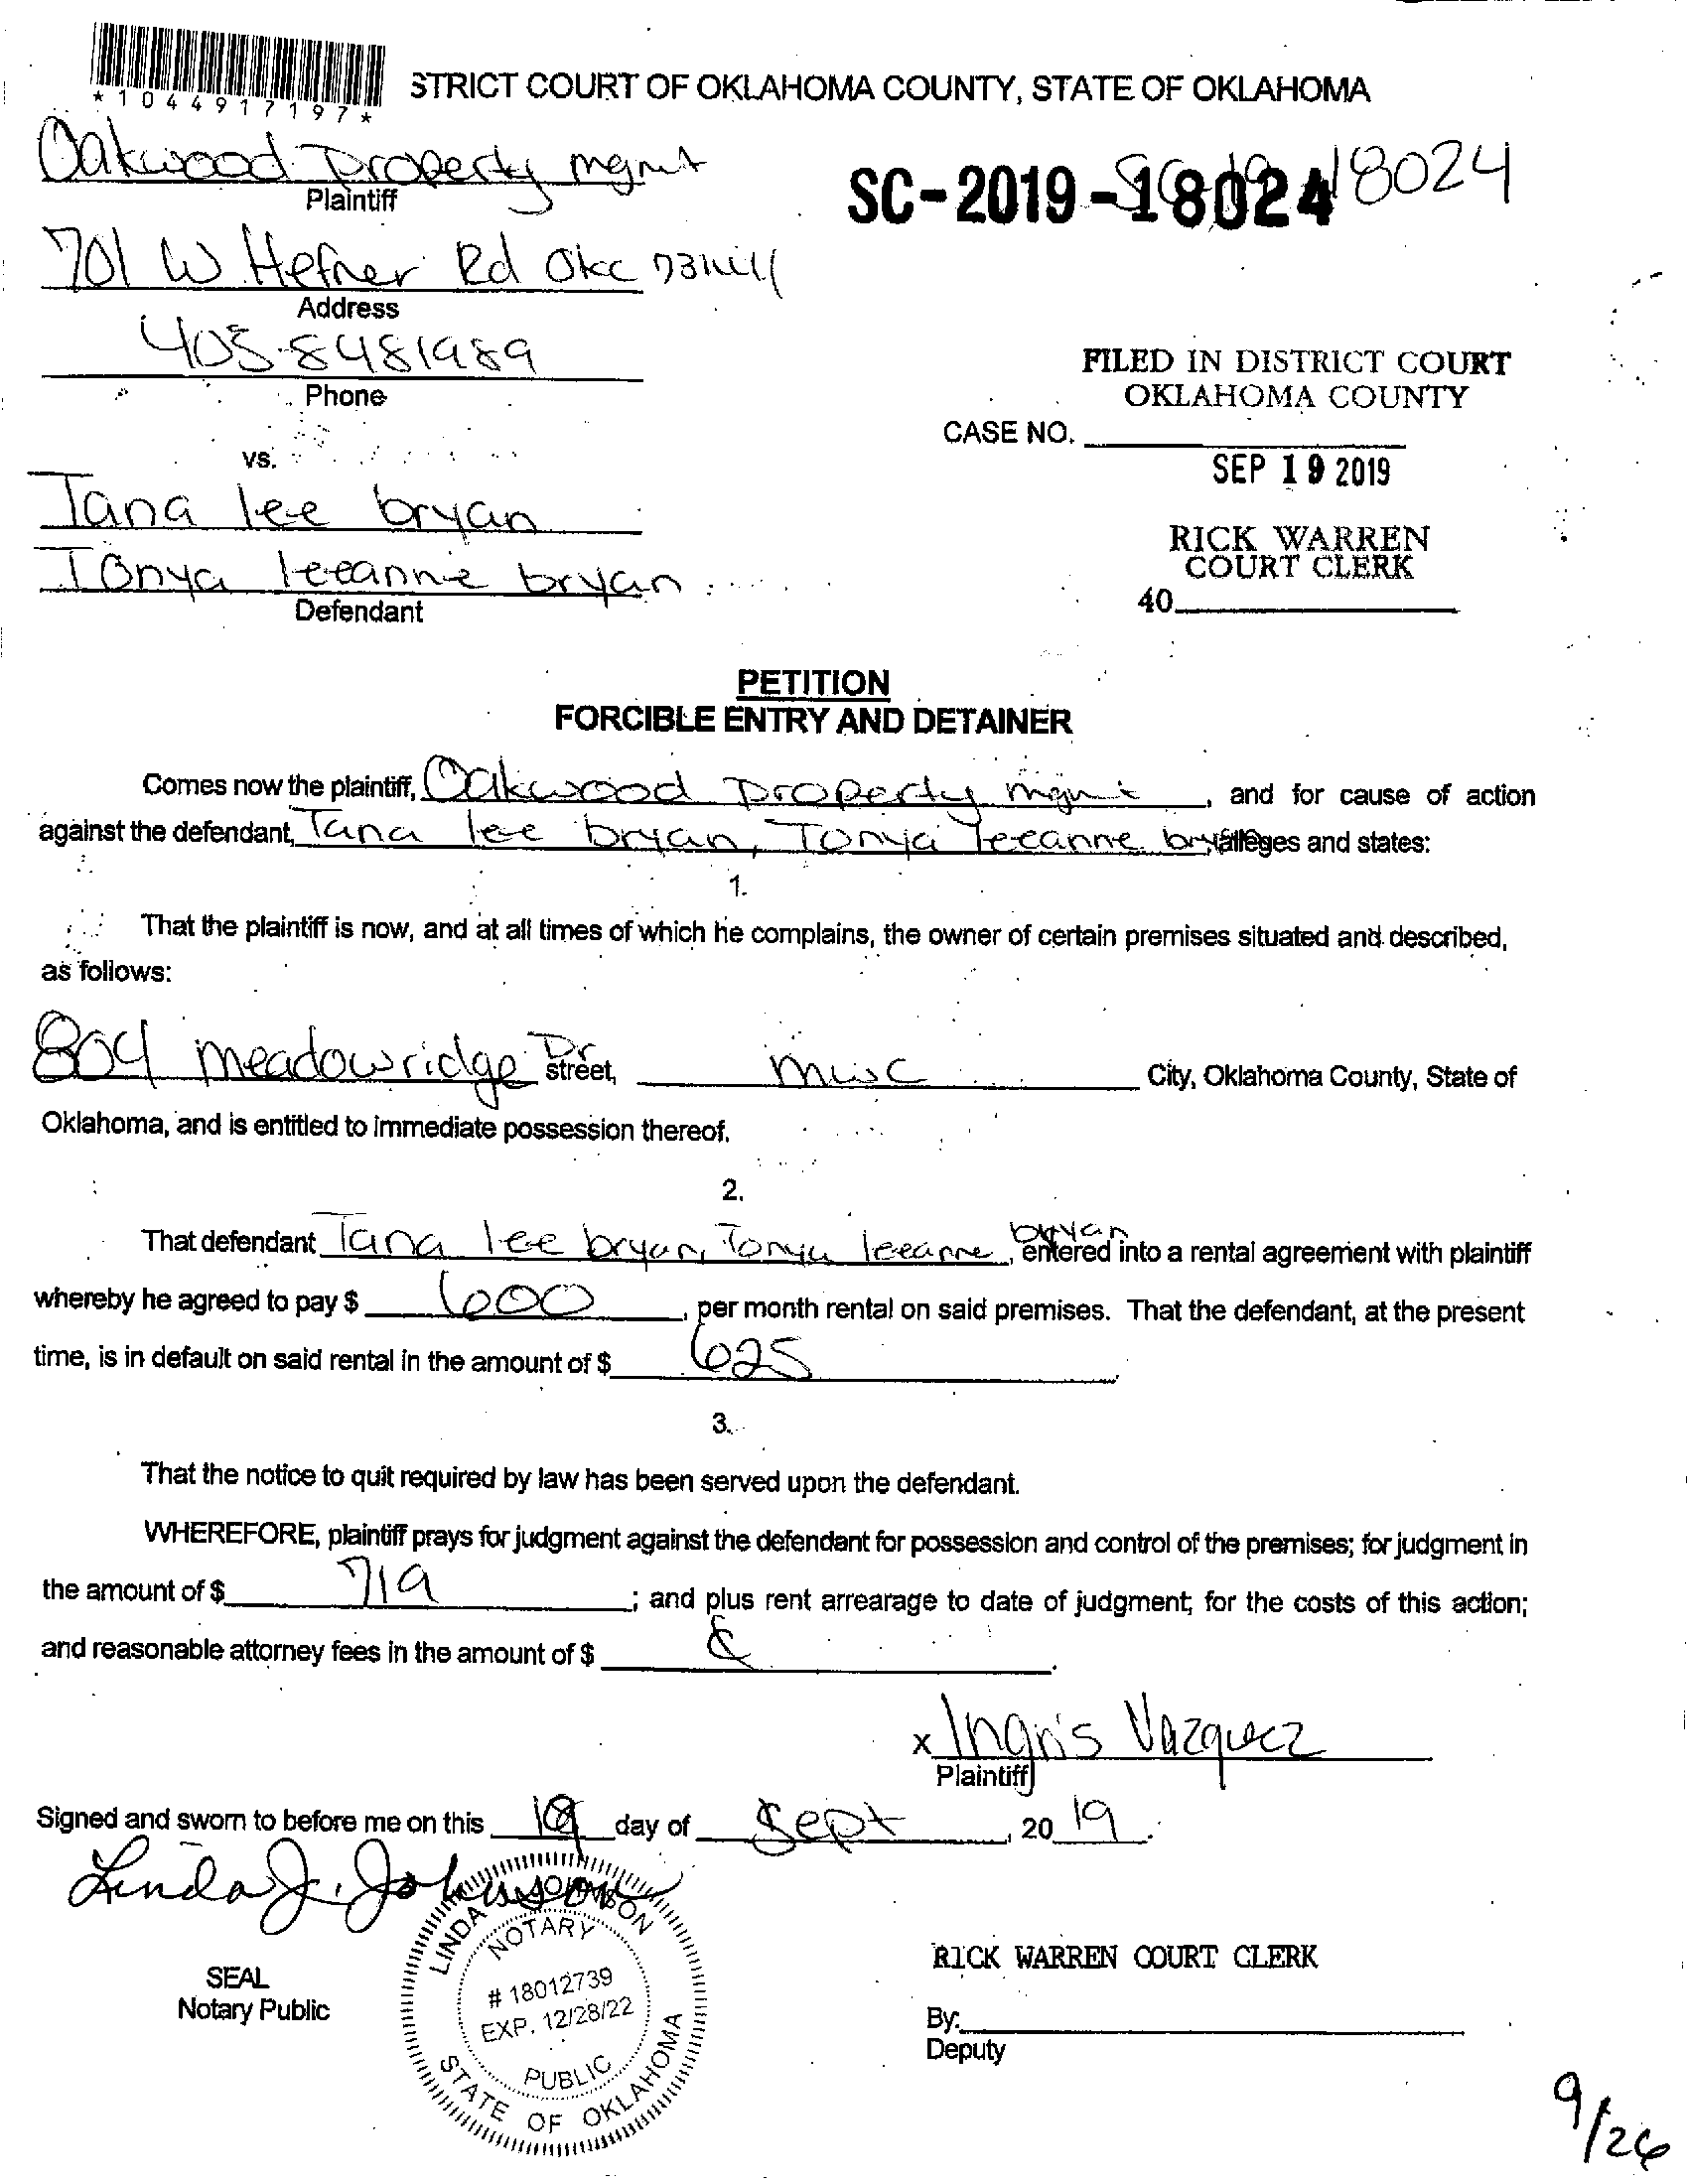 *1044917197*
STRICT COURT OF OKLAHOMA COUNTY, STATE OF OKLAHOMA
Oakwood Property mgmt
Plaintiff
SC-2019-18024
18024
701 W Hefner Rd Okc
Address
405-8481989
Phone
FILED IN DISTRICT COURT
OKLAHOMA COUNTY
CASE NO.
vs.
SEP 19 2019
Tana lee bryan
Tonya leeanne bryan
Defendant
RICK WARREN
COURT CLERK
40
PETITION
FORCIBLE ENTRY AND DETAINER
Comes now the plaintiff, Oakwood Property mgmt, and for cause of action
against the defendant, Tana lee bryan, Tonya leeanne alleges and states:
1.
That the plaintiff is now, and at all times of which he complains, the owner of certain premises situated and described,
as follows:
804 meadowridge Dr street, mwc City, Oklahoma County, State of
Oklahoma, and is entitled to immediate possession thereof.
2.
That defendant Tana lee bryan, Tonya leeanne bryan, entered into a rental agreement with plaintiff
whereby he agreed to pay $ 600, per month rental on said premises. That the defendant, at the present
time, is in default on said rental in the amount of $ 625.
3.
That the notice to quit required by law has been served upon the defendant.
WHEREFORE, plaintiff prays for judgment against the defendant for possession and control of the premises; for judgment in
the amount of $ 719; and plus rent arrearage to date of judgment; for the costs of this action;
and reasonable attorney fees in the amount of $
x Ingris Vazquez
Plaintiff
Signed and sworn to before me on this 19 day of Sept, 20 19.
Linda J. Johnson
LINDA JOHNSON
NOTARY
# 18012739
EXP. 12/28/22
PUBLIC
STATE OF OKLAHOMA
SEAL
Notary Public
RICK WARREN COURT CLERK
By:
Deputy
9/26